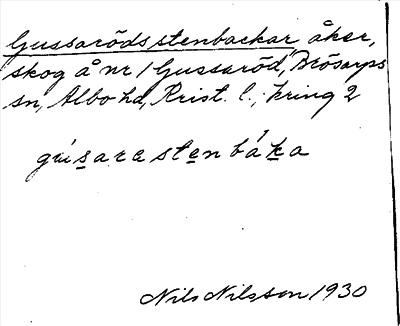 Gussarödsstenbackar åker,
skog å nr 1 Gussaröd, Brösarps
sn, Albo hd, Krist. l.; kring 2
gúsarastenbáka
Nils Nilsson 1930